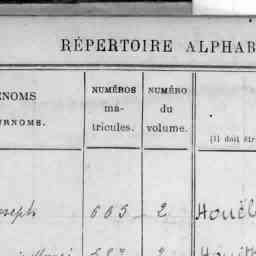 RÉPERTOIRE ALPHAB
ENOMS
URNOMS.
NUMÉROS
ma-
tricules.
NUMÉRO
du
volume.
(Il doit êtr
oseph 665 2 Houël
2